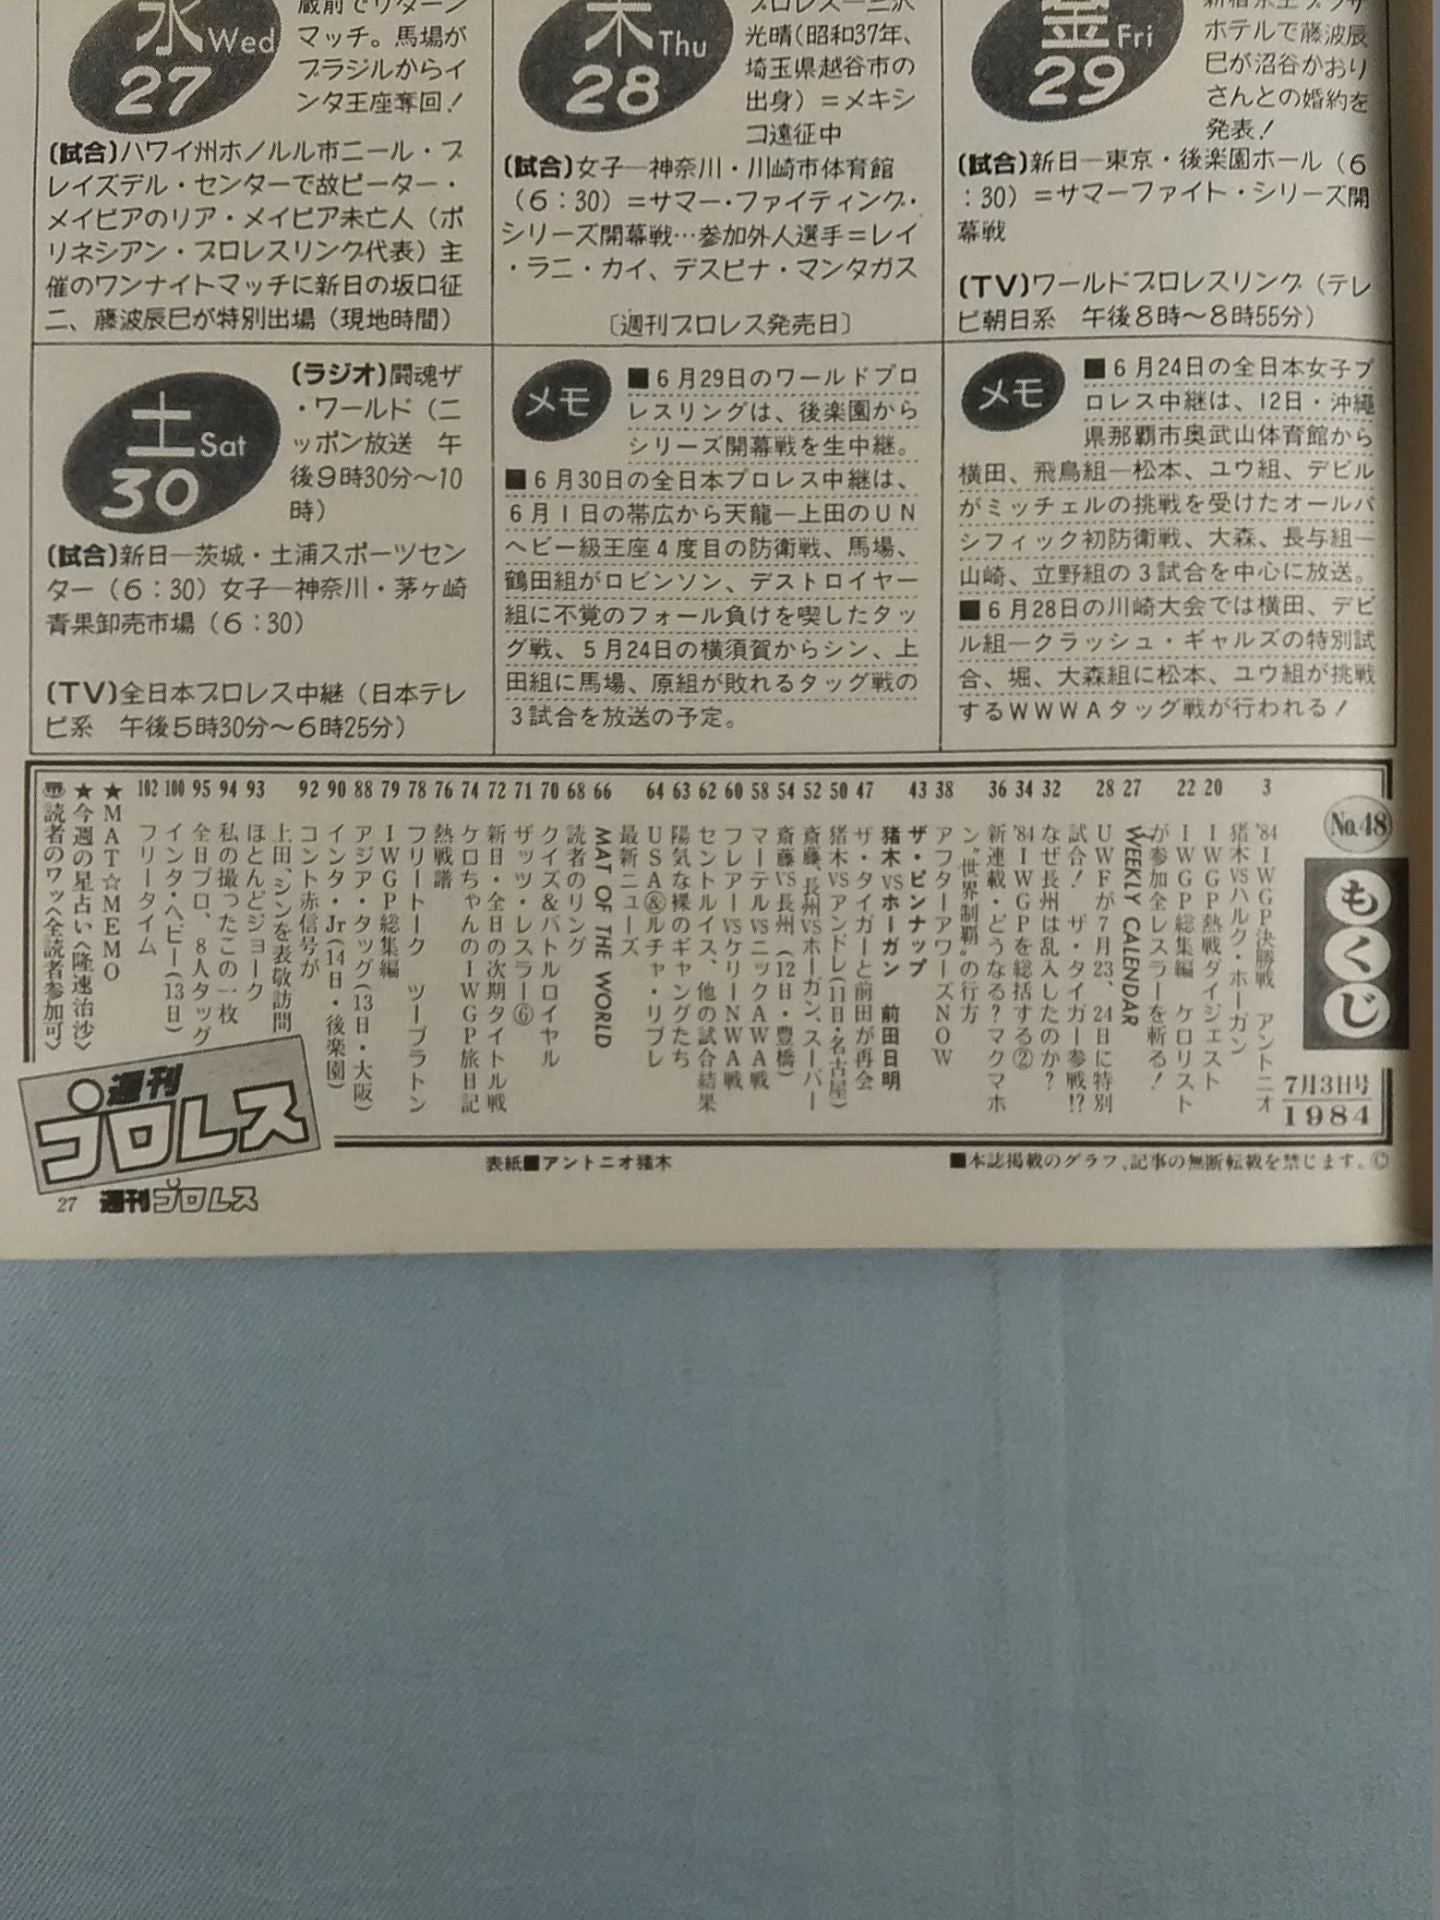 水Wed
27
蔵前でリターン
マッチ。馬場が
ブラジルからイ
ンタ王座奪回！
(試合)ハワイ州ホノルル市ニール・ブ
レイズデル・センターで故ピーター・
メイビアのリア・メイビア未亡人（ポ
リネシアン・プロレスリング代表）主
催のワンナイトマッチに新日の坂口征
二、藤波辰巳が特別出場（現地時間）
木Thu
28
プロレス―三沢
光晴(昭和37年、
埼玉県越谷市の
出身）＝メキシ
コ遠征中
(試合)女子―神奈川・川崎市体育館
（6：30）＝サマー・ファイティング・
シリーズ開幕戦…参加外人選手＝レイ
・ラニ・カイ、デスピナ・マンタガス
〔週刊プロレス発売日〕
金Fri
29
新宿京王プラザ
ホテルで藤波辰
巳が沼谷かおり
さんとの婚約を
発表！
(試合)新日―東京・後楽園ホール（6
：30）＝サマーファイト・シリーズ開
幕戦
(TV)ワールドプロレスリング（テレ
ビ朝日系　午後8時～8時55分）
土Sat
30
(ラジオ)闘魂ザ
・ワールド（ニ
ッポン放送　午
後9時30分～10
時）
(試合)新日―茨城・土浦スポーツセン
ター（6：30）女子―神奈川・茅ヶ崎
青果卸売市場（6：30）
(TV)全日本プロレス中継（日本テレ
ビ系　午後5時30分～6時25分）
メモ
■6月29日のワールドプロ
レスリングは、後楽園から
シリーズ開幕戦を生中継。
■6月30日の全日本プロレス中継は、
6月1日の帯広から天龍―上田のUN
ヘビー級王座4度目の防衛戦、馬場、
鶴田組がロビンソン、デストロイヤー
組に不覚のフォール負けを喫したタッ
グ戦、5月24日の横須賀からシン、上
田組に馬場、原組が敗れるタッグ戦の
3試合を放送の予定。
メモ
■6月24日の全日本女子プ
ロレス中継は、12日・沖縄
県那覇市奥武山体育館から
横田、飛鳥組―松本、ユウ組、デビル
がミッチェルの挑戦を受けたオールパ
シフィック初防衛戦、大森、長与組―
山崎、立野組の3試合を中心に放送。
■6月28日の川崎大会では横田、デビ
ル組―クラッシュ・ギャルズの特別試
合、堀、大森組に松本、ユウ組が挑戦
するWWWAタッグ戦が行われる！
No.48
もくじ
7月3日号
1984
3 '84 IWGP決勝戦　アントニオ
猪木VSハルク・ホーガン
20 IWGP熱戦ダイジェスト
22 IWGP総集編　ケロリスト
が参加全レスラーを斬る！
27 WEEKLY CALENDAR
28 UWFが7月23、24日に特別
試合！　ザ・タイガー参戦!?
32 なぜ長州は乱入したのか？
34 '84 IWGPを総括する②
36 新連載・どうなる？マクマホ
ン“世界制覇”の行方
38 アフターアワーズNOW
43 ザ・ピンナップ
猪木VSホーガン　前田日明
47 ザ・タイガーと前田が再会
50 猪木VSアンドレ(11日・名古屋)
52 斎藤、長州VSホーガン、スーパー
54 斎藤VS長州　(12日・豊橋)
58 マーテルVSニックAWA戦
60 フレアーVSケリーNWA戦
62 セントルイス、他の試合結果
63 陽気な裸のギャングたち
64 USA&ルチャ・リブレ
最新ニューズ
66 MAT OF THE WORLD
68 読者のリング
70 クイズ&バトルロイヤル
71 ザッツ・レスラー⑥
72 新日・全日の次期タイトル戦
74 ケロちゃんのIWGP旅日記
76 熱戦譜
78 フリートーク　ツープラトン
79 IWGP総集編
88 アジア・タッグ(13日・大阪)
90 インタ・Jr(14日・後楽園)
92 コント赤信号が
上田、シンを表敬訪問
93 ほとんどジョーク
94 私の撮ったこの一枚
95 全日プロ、8人タッグ
100 インタ・ヘビー(13日)
102 フリータイム
★MAT☆MEMO
★今週の星占い〈隆速治沙〉
読者のワッ〈全読者参加可〉
週刊
プロレス
表紙■アントニオ猪木
■本誌掲載のグラフ、記事の無断転載を禁じます。©
27 週刊プロレス